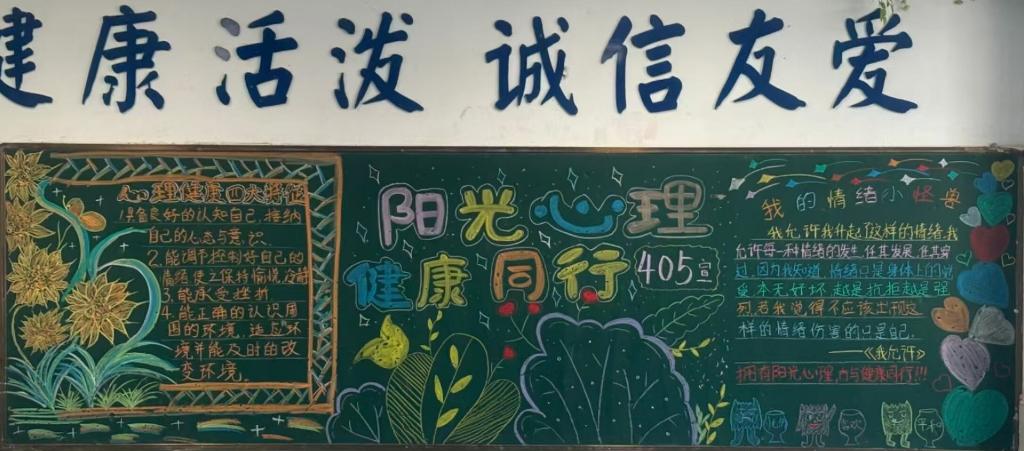 健康活泼 诚信友爱
心理健康四大特征
1.具备良好的认知自己、接纳
自己的心态与意识.
2.能调节控制好自己的
情绪使之保持愉悦、冷静
3.能承受挫折
4.能正确的认识周
围的环境、适应环
境并能及时的改
变环境.
阳光心理
健康同行
405宣
我的情绪小怪兽
我允许我升起了这样的情绪,我
允许每一种情绪的发生,任其发展,任其穿
过,因为我知道,情绪只是身体上的觉
受,本无好坏,越是抗拒越是强
烈,若我觉得不应该出现这
样的情绪,伤害的只是自己.
——《我允许》
拥有阳光心理,与健康同行!!!
喜欢
平和